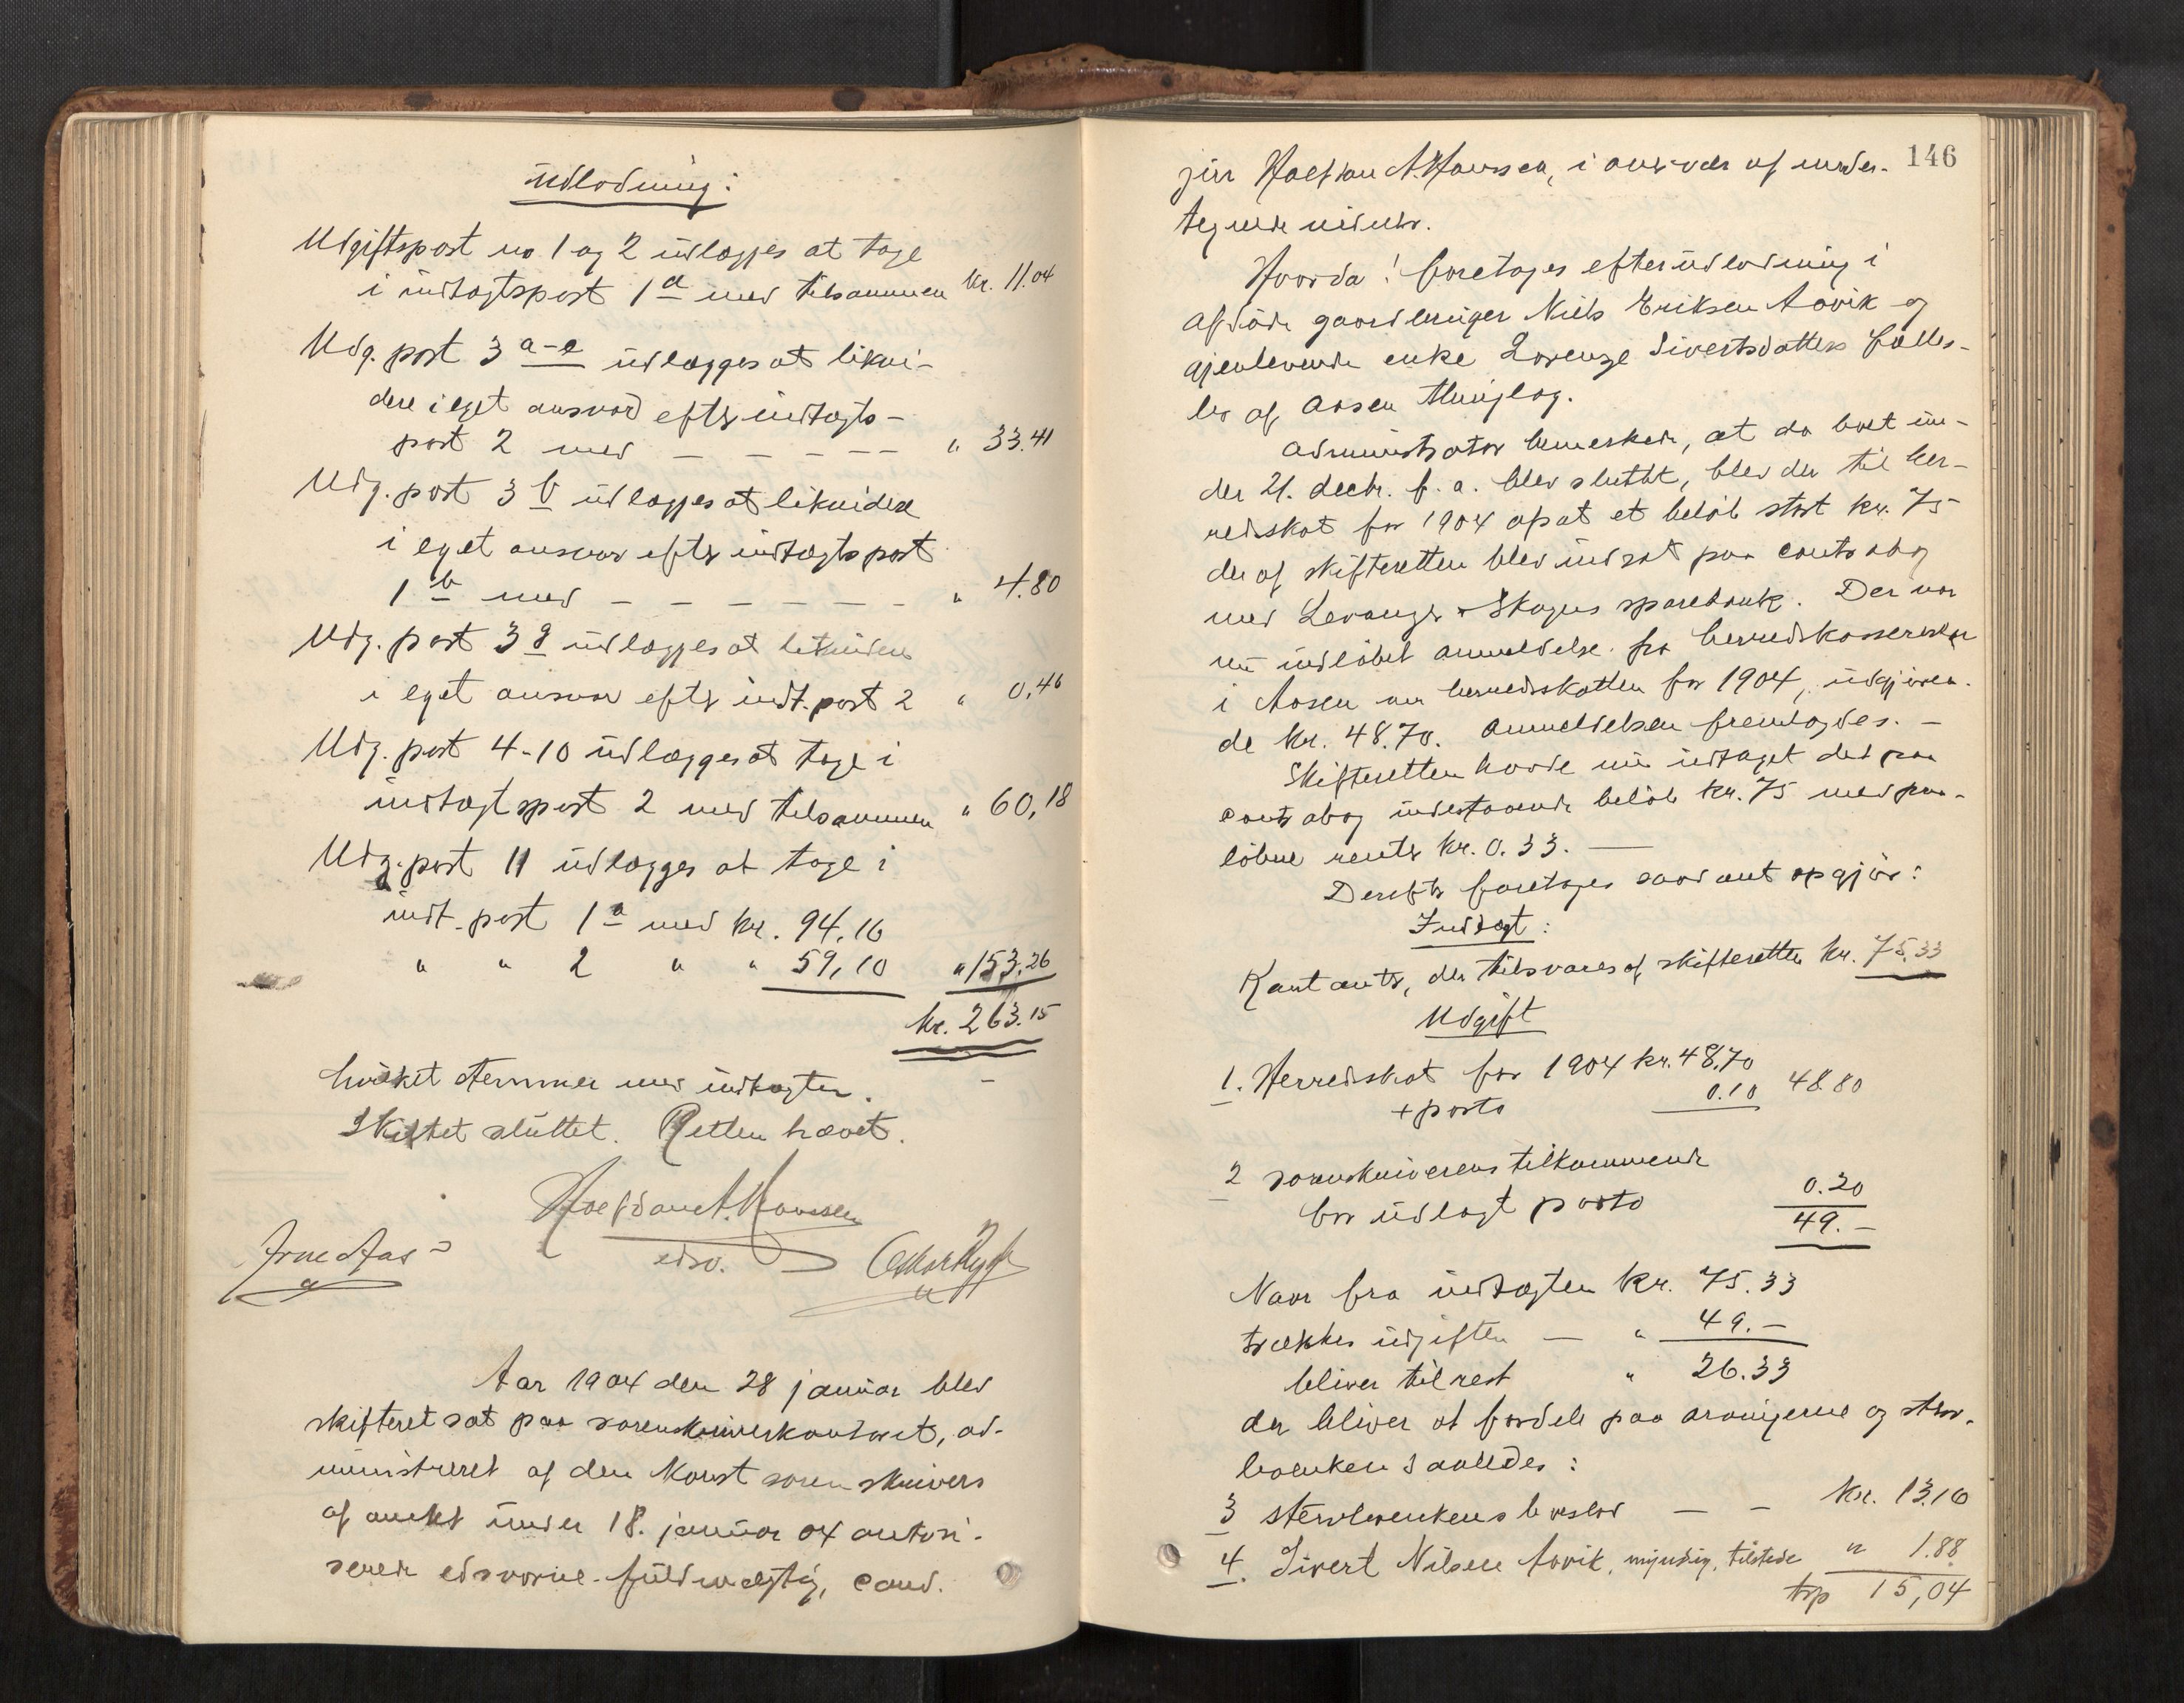 Udlodning:
Udgiftspost no 1 og 2 udlægges at tage
i indtægtspost 1a med tilsammen kr. 11.04
Udg. post 3 a-e udlægges at likvi-
dere i eget ansvar efter indtægts-
post 2 med - - - - - " 33.41
Udg. post 3 b udlægges at likvidere
i eget ansvar efter indtægtspost
1 b med - - - - - - " 4.80
Udg. post 3 g udlægges at likvidere
i eget ansvar efter indt. post 2 " 0,46
Udg. post 4-10 udlægges at tage i
indtægtspost 2 med tilsammen " 60,18
Udg. post 11 udlægges at tage i
indt. post 1a med kr. 94.16
" " 2 " " 59,10 " 153,26
kr. 263.15
hvilket stemmer med indtægten.
Skiftet sluttet. Retten hævet.
Halfdan A. Hanssen
Arne Aas
edsv.
Aar 1904 den 28 januar blev
skifteret sat paa sorenskriverkontoret, ad-
ministreret af den konst sorenskrivers
af amtet under 18. januar 04 autori-
serede edsvorne fuldmægtig, cand.
146
jur Halfdan A. Hanssen, i overvær af under-
tegnede vidner.
Hvorda! foretages efterudlodning i
afdøde gaardbruger Niels Eriksen Aavik og
gjenlevende enke Lorense Sivertsdatters fælles-
bo af Aasen thinglag.
Administrator bemerkede, at da boet un-
der 21. decbr. f. a. blev sluttet, blev der til her-
redsskat for 1904 afsat et beløb stort kr. 75
der af skifteretten blev indsat paa contrabog
med Levanger & Skogns sparebank. Der var
nu indløbet anmeldelse fra herredskassereren
i Aasen om herredsskatten for 1904, udgjøren-
de kr. 48.70. Anmeldelsen fremlagdes. -
Skifteretten havde nu udtaget det paa
contrabog indestaaende beløb kr. 75 med paa-
løbne renter kr. 0.33. -
Derefter foretages saadant opgjør:
Indtægt:
Kontanter, der tilsvares af skifteretten kr. 75.33
Udgift
1. Herredsskat for 1904 kr. 48.70
+ porto 0.10 48.80
2 sorenskriverens tilkommende
for udlagt porto 0.20
49.-
Naar fra indtægten kr. 75.33
trækkes udgiften - " 49.-
bliver til rest " 26.33
der bliver at fordele paa arvingerne og sterv-
boenken saaledes:
3 stervboenkens boslod - - kr. 13.16
4. Sivert Nilsen Aavik, myndig, tilstede " 1.88
trp 15,04